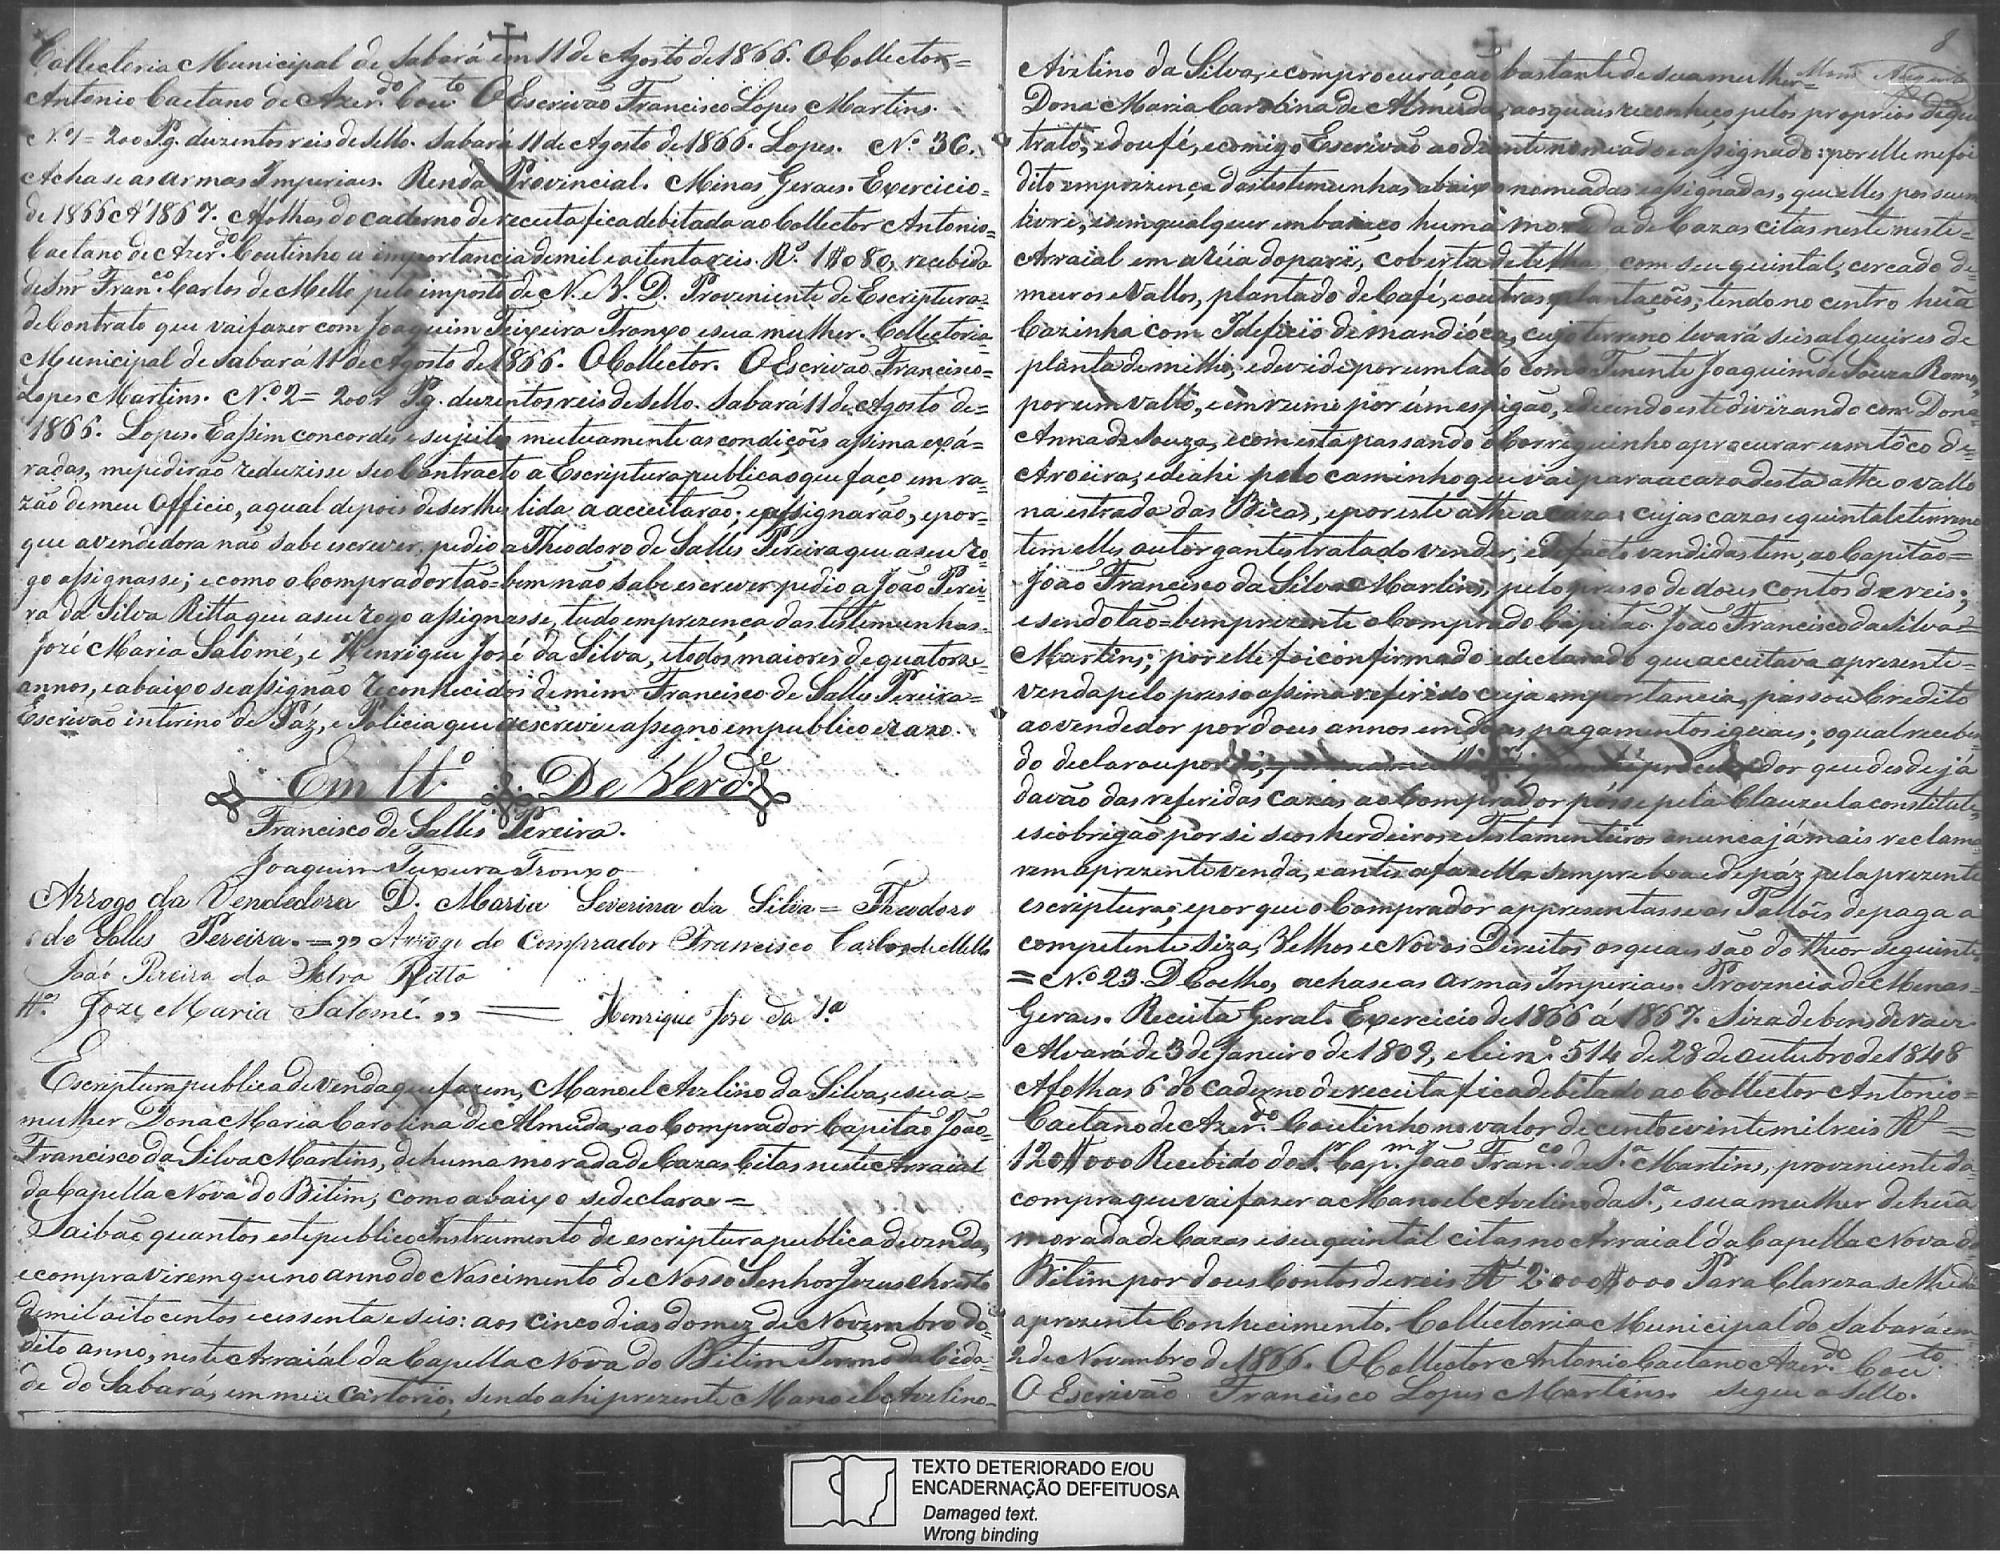 Collectoria Municipal de Sabará em 11 de Agosto de 1866. O Collector=
Antonio Caetano de Azer.do Cou.to O Escrivão Francisco Lopes Martins.
N.º 1= 200 Pg. duzentos reis de sello. Sabará 11 de Agosto de 1866. Lopes. N.º 36.
Achase as armas Imperiaes. Renda Provincial. Minas Geraes. Exercicio=
de 1866 A 1867. Afolhas do caderno de receita fica debitado ao Collector Antonio=
Caetano de Azer.do Coutinho a importancia de mil e oitenta reis. R.s 1$080, recebida
do Snr Fran.co Carlos de Mello pelo imposto de N. e V. D. Proveniente de Escriptura=
de Contrato que vai fazer com Joaquim Teixeira Tronxo e sua mulher. Collectoria=
Municipal de Sabará 11 de Agosto de 1866. O Collector. O Escrivão Francisco=
Lopes Martins. N.º 2= 200 r Pg. duzentos reis de sello. Sabará 11 de Agosto de=
1866. Lopes. E assim concordes e sujeitos mutuamente as condições assima expá=
radas, me pedirão reduzisse seo Contracto a Escriptura publica o que faço em ra=
zão de meu Officio, a qual depois de ser lhes lida a acceitarão; e assignarão, e por=
que a vendedora não sabe escrever, pedio a Theodoro de Salles Pereira que a seu ro=
go assignasse; e como o Comprador tão=bem não sabe escrever pedio a João Perei=
ra da Silva Ritta que a seu rogo assignasse, tudo em prezença das testemunhas
Jozé Maria Salomé, e Henrique José da Silva, e todos maiores de quatorze=
annos, e abaixo se assignão reconhecidos de mim Francisco de Salles Pereira=
Escrivão interino de Páz, e Policia que a escrevi e assigno em publico e razo.
Em tt.º De Verd.e
Francisco de Salles Pereira.
Joaquim Teixeira Tronxo
Arrogo da Vendedora D. Maria Severina da Silva= Theodoro
de Salles Pereira.=,, Arrogo do Comprador Francisco Carlos de Mello
João Pereira da Silva Ritta
tt.as Joze Maria Salomé. ,, = Henrique Joze da S.a
Escriptura publica de venda que fazem, Manoel Avelino da Silva, e sua=
mulher Dona Maria Carolina de Almeida, ao Comprador Capitão João=
Francisco da Silva Martins, de huma morada de Cazas Citas neste Arraial
da Capella Nova do Bitim, como abaixo se declara=
Saibão quantos este publico Instrumento de escriptura publica de venda,
e compra virem que no anno do Nascimento de Nosso Senhor Jezus Christo
de mil oito centos e cessenta e seis: aos cinco dias do mez de Novembro do=
dito anno, neste Arraiál da Capella Nova do Bitim Termo da Cida=
de do Sabará, em meu Cartorio, sendo ahi prezente Manoel Avelino=
8
Avelino da Silva, e com procuração bastante de sua mulher=
Dona Maria Carolina de Almeida, aos quais reconheço pelos proprios de que
trato, e dou fé, e comigo Escrivão ao diante nomeado e assignado: por elle me foi
dito em prezença das testemunhas abaixo nomeadas e assignadas, que elles possuem
livre, e sem qualquer embaraço huma morada de Cazas citas neste neste=
Arraial em a rúa do pari, coberta de telhas com seu quintal, cercado de=
muros e Vallos, plantado de Café, e outras plantações; tendo no centro huã
Cazinha com Ideficio de mandióca, cujo terreno levará seis alqueires de
planta de milho, e devide por um lado com o Tenente Joaquim de Souza Romo,
por um vallo, e em rumo por um espigão, e decendo este divizando com Dona
Anna de Souza, e com esta passando o Correguinho a procurar um tôco de=
Aroeira, e de ahi pelo caminho que vai para a caza desta athe o vallo
na estrada das Bicas, e por este athe a caza: cujas cazas e quintal e terreno
tem elles outorgantes tratado vender, e de facto vendidas tem, ao Capitão=
João Francisco da Silva Martins, pelo presso de dous contos de reis;
e sendo tão=bem prezente o Comprado Capitão João Francisco da Silva=
Martins; por elle foi confirmado e declarado que acceitava a prezente=
venda pelo presso assima referido cuja emportancia, passou Credito
ao vendedor por dous annos em dous pagamentos iguais; o qual receben=
do declarou por dor que desde já
davão das referidas cazas ao Comprador pósse pela Clauzula constitute,
e se obrigão por si seos herdeiros e Testamenteiros a nunca já mais reclama
rem a prezente venda, e antes a fazella sempre boa e de páz pela prezente
escriptura; e por que o Comprador appresentasse os Tallões de paga a
competente siza, Velhos e Novos Direitos os quais são do theor seguinte
=N.º 23. D Coelho, achase as armas Imperiais. Provincia de Minas=
Gerais. Receita Geral. Exercicio de 1866 á 1867. Siza de bens de raiz
Alvará de 3 de Janeiro de 1809, e lei n.º 514 de 28 de outubro de 1848
Afolhas 6 do caderno de receita fica debitado ao Collector Antonio=
Caetano de Azer.do Coutinho no valor de cento e vinte mil reis R.s=
120$000 Recebido do S.r Cap.m João Fran.co da S.a Martins, proveniente da
compra que vai fazer a Manoel Avelino da S.a, e sua mulher de huã
morada de Cazas e seu quintal citas no Arraial da Capella Nova do
Bitim por dous Contos de reis R.s 2:000$000 Para Clareza se lhe dá
a prezente Conhecimento. Collectoria Municipal do Sabará em
2 de Novembro de 1866. O Collector Antonio Caetano Azer.do Cou.to
O Escrivão Francisco Lopes Martins. segue o Sello.
TEXTO DETERIORADO E/OU
ENCADERNAÇÃO DEFEITUOSA
Damaged text.
Wrong binding